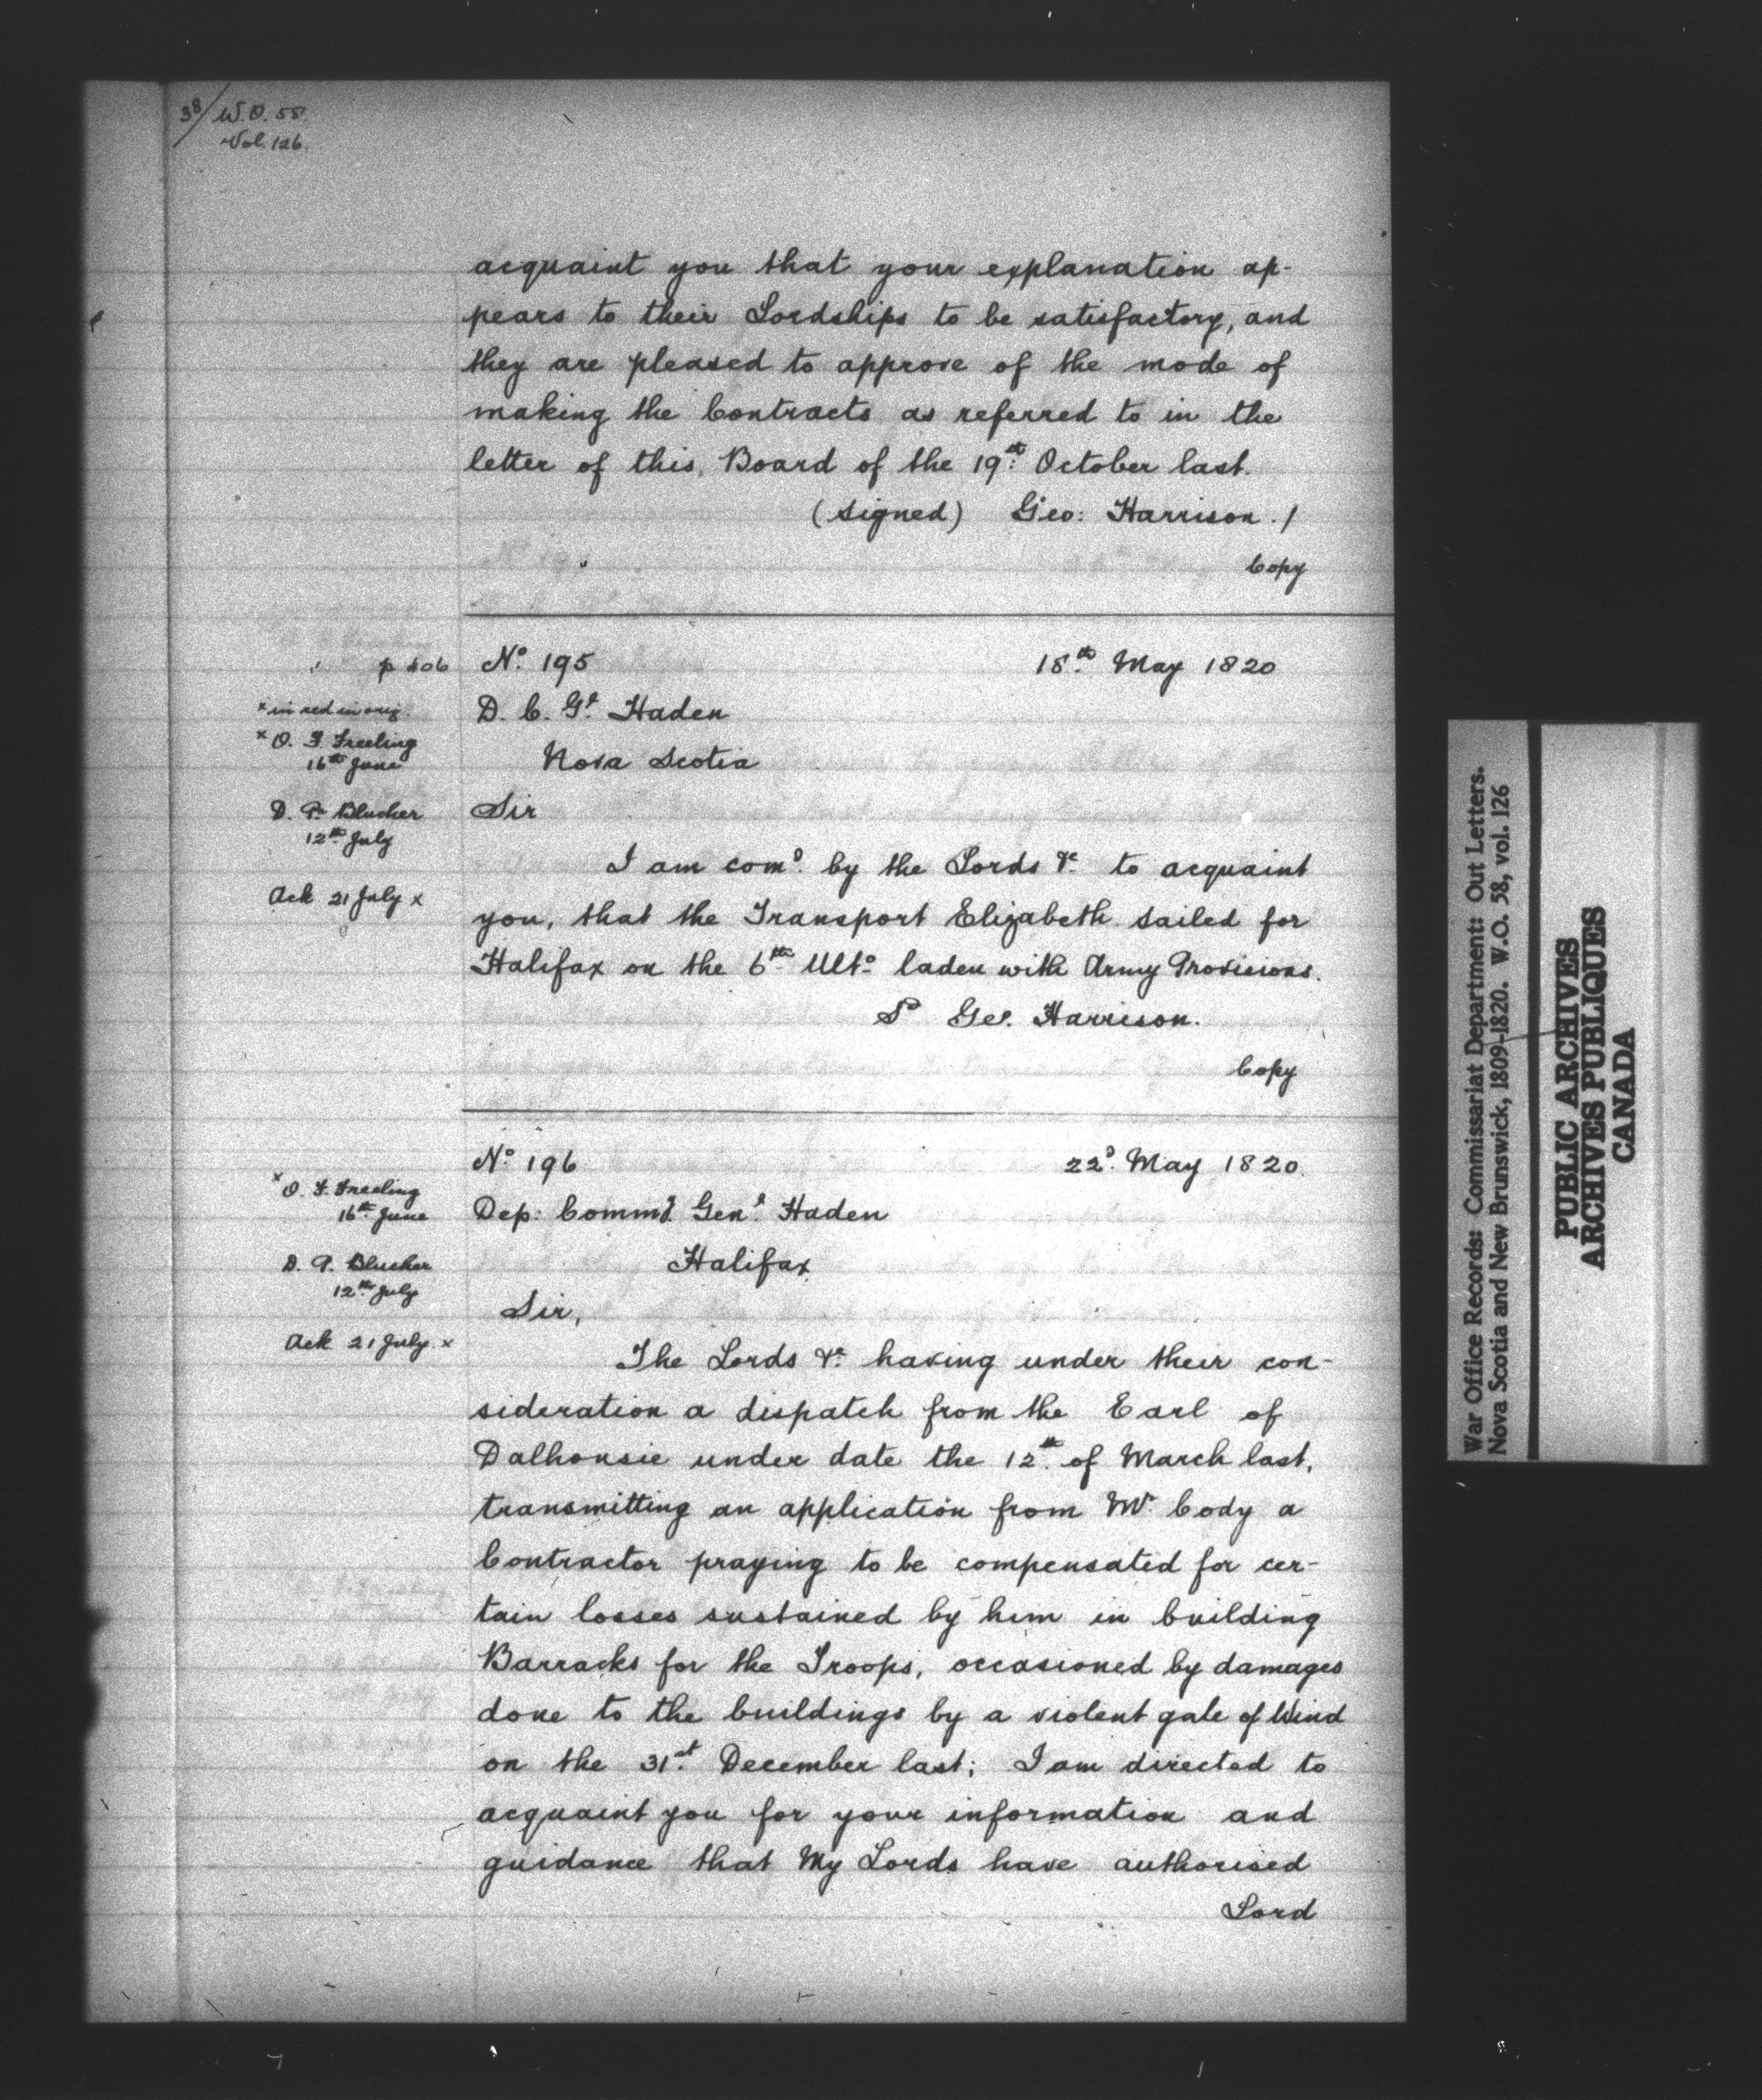 38/ W.O. 58.
Vol. 126.
acquaint you that your explanation ap-
pears to their Lordships to be satisfactory, and
they are pleased to approve of the mode of
making the Contracts as referred to in the
letter of this Board of the 19th October last.
(Signed) Geo: Harrison./
Copy
p 406
No. 195 18th May 1820
x in red in orig.
D. C. Gl. Haden
x O. F. Freeling
16th June
Nova Scotia
D. P. Blucher
12th July
Sir
Ack 21 July x
I am comd. by the Lords &c. to acquaint
you, that the Transport Elizabeth sailed for
Halifax on the 6th Ulto. laden with Army Provisions.
Sd Geo. Harrison.
Copy
No. 196 22d. May 1820.
x O. F. Freeling
16th June
Dep: Commy. Genl. Haden
D. P. Blucher
12th July
Halifax
Sir,
Ack 21 July x
The Lords &c. having under their con-
sideration a dispatch from the Earl of
Dalhousie under date the 12th. of March last,
transmitting an application from Mr. Cody a
Contractor praying to be compensated for cer-
tain losses sustained by him in building
Barracks for the Troops, occasioned by damages
done to the buildings by a violent gale of Wind
on the 31st. December last; I am directed to
acquaint you for your information and
guidance that My Lords have authorised
Lord
War Office Records: Commissariat Department: Out Letters.
Nova Scotia and New Brunswick, 1809-1820. W.O. 58, vol. 126
PUBLIC ARCHIVES
ARCHIVES PUBLIQUES
CANADA